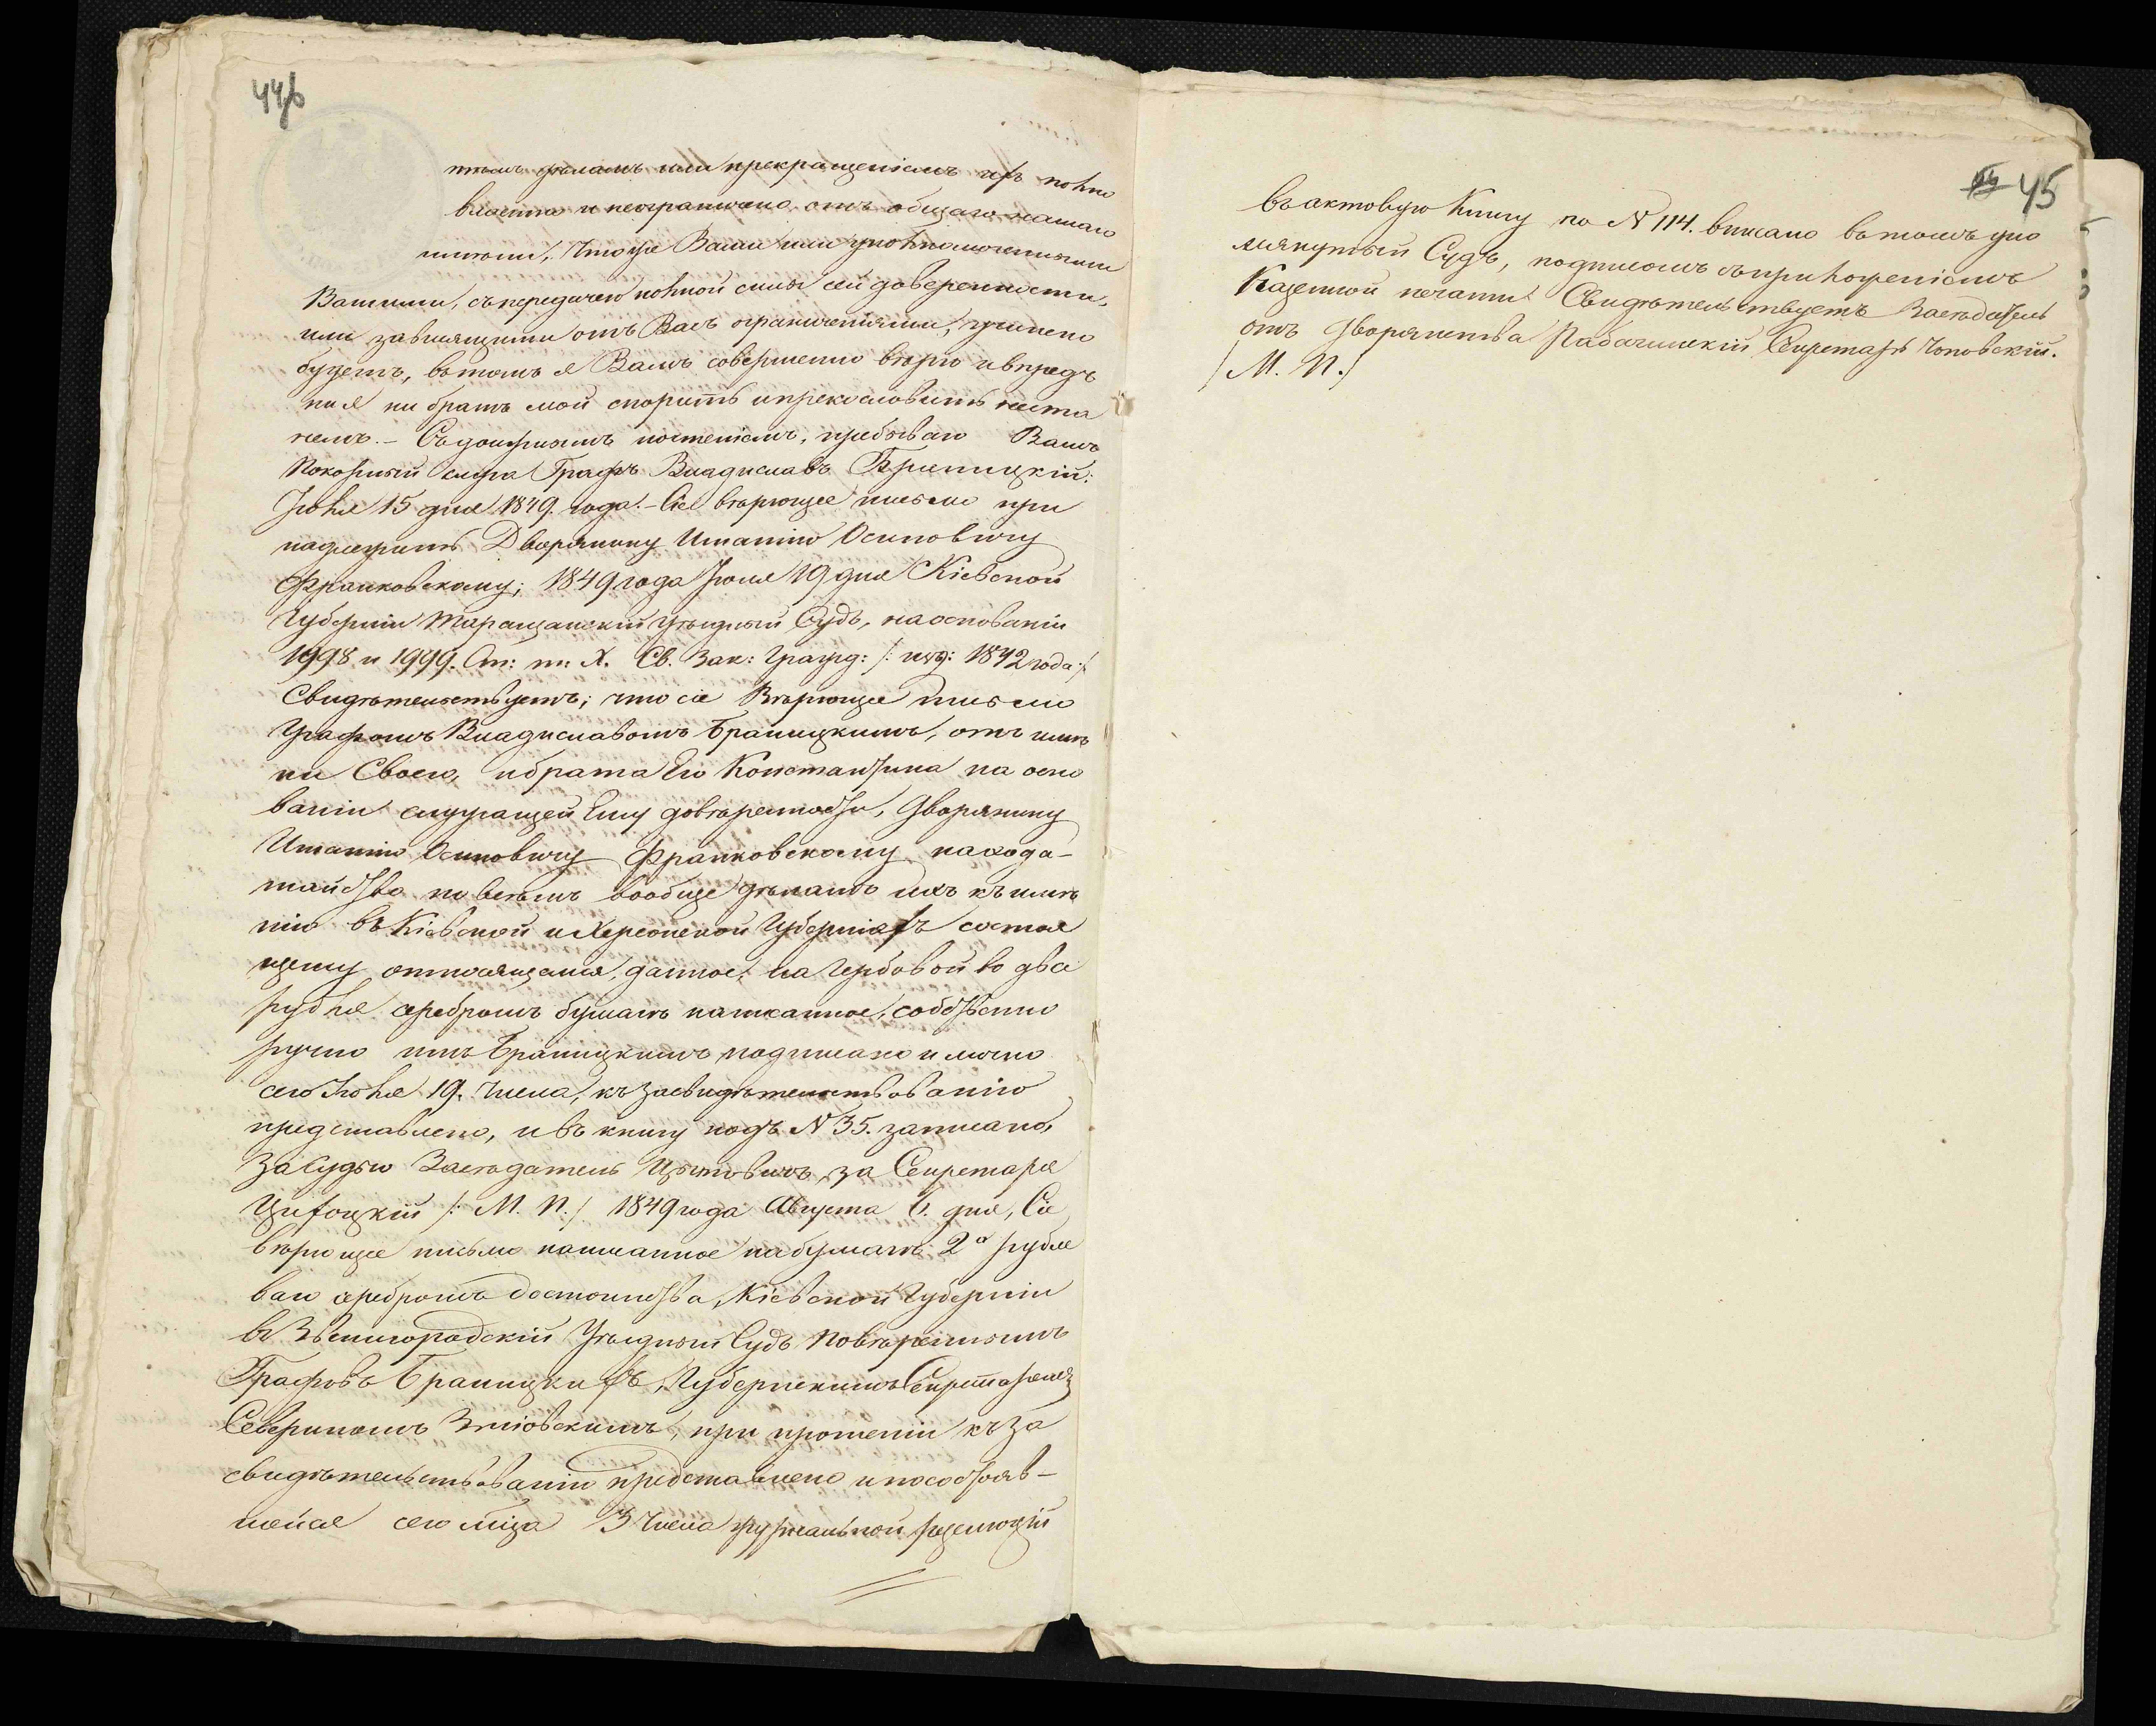 44б
тѣмъ дѣламъ или прекращеніемъ ихъ полно
властно и неограничено отъ общаго нашаго
имѣни, что же Вами или уполномоченными
Вашими, съ передачею полной силы сей доверенности,
или зависящими отъ Васъ ограниченіями, учинено
будетъ, въ томъ я Вамъ совершенно вѣрю и впредъ
ни я ни братъ мой спорить и прекословить неста
немъ. – Съ должнымъ почтеніемъ, пребываю Вамъ
Покорный слуга Графъ Владиславъ Браницкій:
Іюля 15 дня 1849. года. – Сіе вѣрющее письмо при
надлежитъ Дворянину Игнатію Осиповичу
Франковскому; 1849 года Іюля 19 дня Кіевской
Губерніи Таращанскій уѣздный Судъ, на основаніи
1998 и 1999. Ст: т: X. Св. Зак: Гражд: /: изд: 1842 года :/
Свидѣтельствуетъ; что сіе Вѣрющее письмо
Графомъ Владиславомъ Браницкимъ, отъ име
ни Своего, и брата Его Константина на осно
ваніи служащей Ему довѣренности, Дворянину
Игнатію Осиповичу Франковскому на хода-
тайство по всѣмъ вообще дѣламъ ихъ къ имѣ
нію въ Кіевской и Херсонской Губерніяхъ состоя
щему относящимся, данное, на Гербовой во два
рубля серебромъ бумагѣ написанное, собственно
ручно имъ Браницкимъ подписано и лично
сего Іюля 19. числа, къ засвидѣтельствованію
представлено, и въ книгу подъ N 35. записано,
За Судью Засѣдатель за Секретаря
/: М. П. / 1849 года Августа 6. дня, Сіе
вѣрющее письмо написанное на бумагѣ 2х рубле
ваго серебромъ достоинства, Кіевской Губерніи
въ Звенигородскій Уѣздный Судъ Повѣреннымъ
Графовъ Браницкихъ, Губернскимъ Секретаремъ
Севериномъ при прошеніи къ за
свидѣтельствованію представлено и по состояв-
шейся сего мѣца 3 числа журнальной резолюціи
45
въ актовую Книгу по N 114. вписано въ томъ упо
мянутый Судъ, подписомъ съ приложеніемъ
Казенной печати Свидѣтельствуетъ Засѣдатель
отъ Дворянства Секретарь Чоповскій.
/ М. П. /